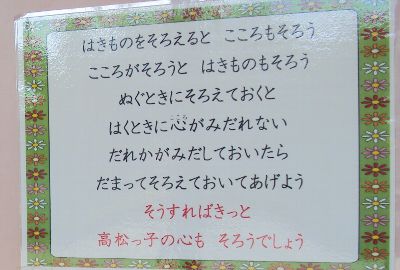 はきものをそろえると　こころもそろう
こころがそろうと　はきものもそろう
ぬぐときにそろえておくと
はくときに心がみだれない
だれかがみだしておいたら
だまってそろえておいてあげよう
そうすればきっと
高松っ子の心も　そろうでしょう